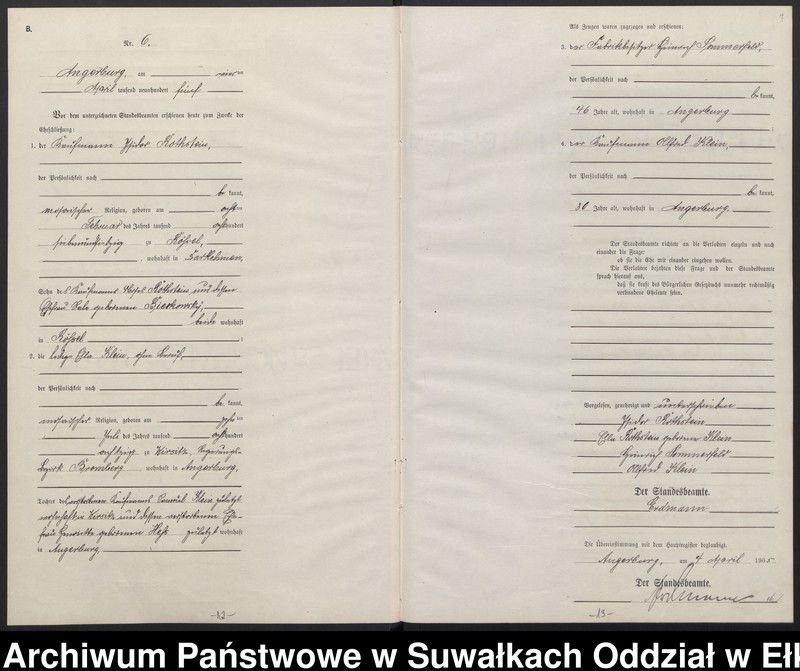 B.
Nr. 6.
Angerburg, am vier ten
April tausend neunhundert fünf
Vor dem unterzeichneten Standesbeamten erschienen heute zum Zwecke der
Eheschließung:
1. der Kaufmann Isidor Rothstein,
der Persönlichkeit nach
be kannt,
mosaischer Religion, geboren am achten
Februar des Jahres tausend achthundert
siebenundsiebzig zu Rössel,
, wohnhaft in Darkehmen,
Sohn des Kaufmanns Rothstein, und dessen
Ehefrau geborenen
beide wohnhaft
in Rössel ;
2. die ledige Ella Klein, ohne Beruf,
der Persönlichkeit nach
be kannt,
mosaischer Religion, geboren am zehn ten
Juli des Jahres tausend achthundert
achtzig zu Wirsitz, Regierungs-
bezirk Bromberg, wohnhaft in Angerburg,
Tochter des verstorbenen Kaufmanns Klein zuletzt
wohnhaft in Wirsitz und dessen verstorbenen Ehe-
frau Henriette geborenen Heß zuletzt wohnhaft
in Angerburg
-12-
9
Als Zeugen waren zugezogen und erschienen:
3. der Fabrikbesitzer Heinrich Sommerfeld,
der Persönlichkeit nach
be kannt,
46 Jahre alt, wohnhaft in Angerburg
4. der Kaufmann Alfred Klein,
der Persönlichkeit nach
be kannt,
30 Jahre alt, wohnhaft in Angerburg.
Der Standesbeamte richtete an die Verlobten einzeln und nach
einander die Frage:
ob sie die Ehe mit einander eingehen wollen.
Die Verlobten bejahten diese Frage und der Standesbeamte
sprach hierauf aus,
daß sie kraft des Bürgerlichen Gesetzbuchs nunmehr rechtmäßig
verbundene Eheleute seien.
Vorgelesen, genehmigt und unterschrieben
Isidor Rothstein
Ella Rothstein geborene Klein
Heinrich Sommerfeld
Alfred Klein
Der Standesbeamte.
Erdmann
Die Übereinstimmung mit dem Hauptregister beglaubigt.
Angerburg, am 4 April 1905.
Der Standesbeamte.
Erdmann
-13-
Archiwum Państwowe w Suwałkach Oddział w Eł